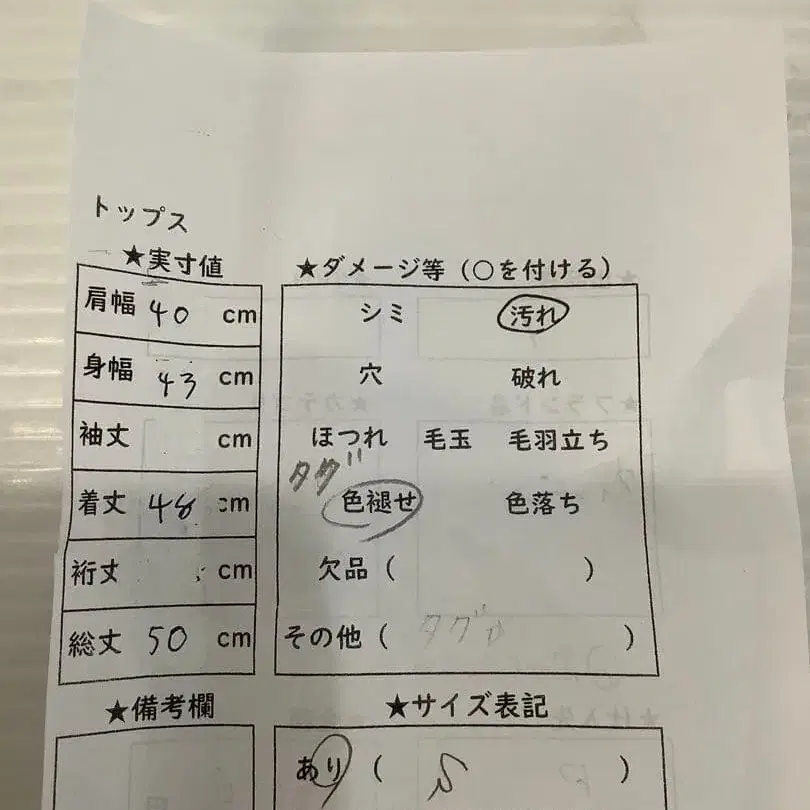 トップス
★実寸値 ★ダメージ等（○を付ける）
肩幅 40 cm シミ 汚れ
身幅 43 cm 穴 破れ
袖丈 cm ほつれ 毛玉 毛羽立ち
タグ
着丈 48 cm 色褪せ 色落ち
裄丈 cm 欠品（ ）
総丈 50 cm その他（ タグ ）
★備考欄 ★サイズ表記
あり（ S ）